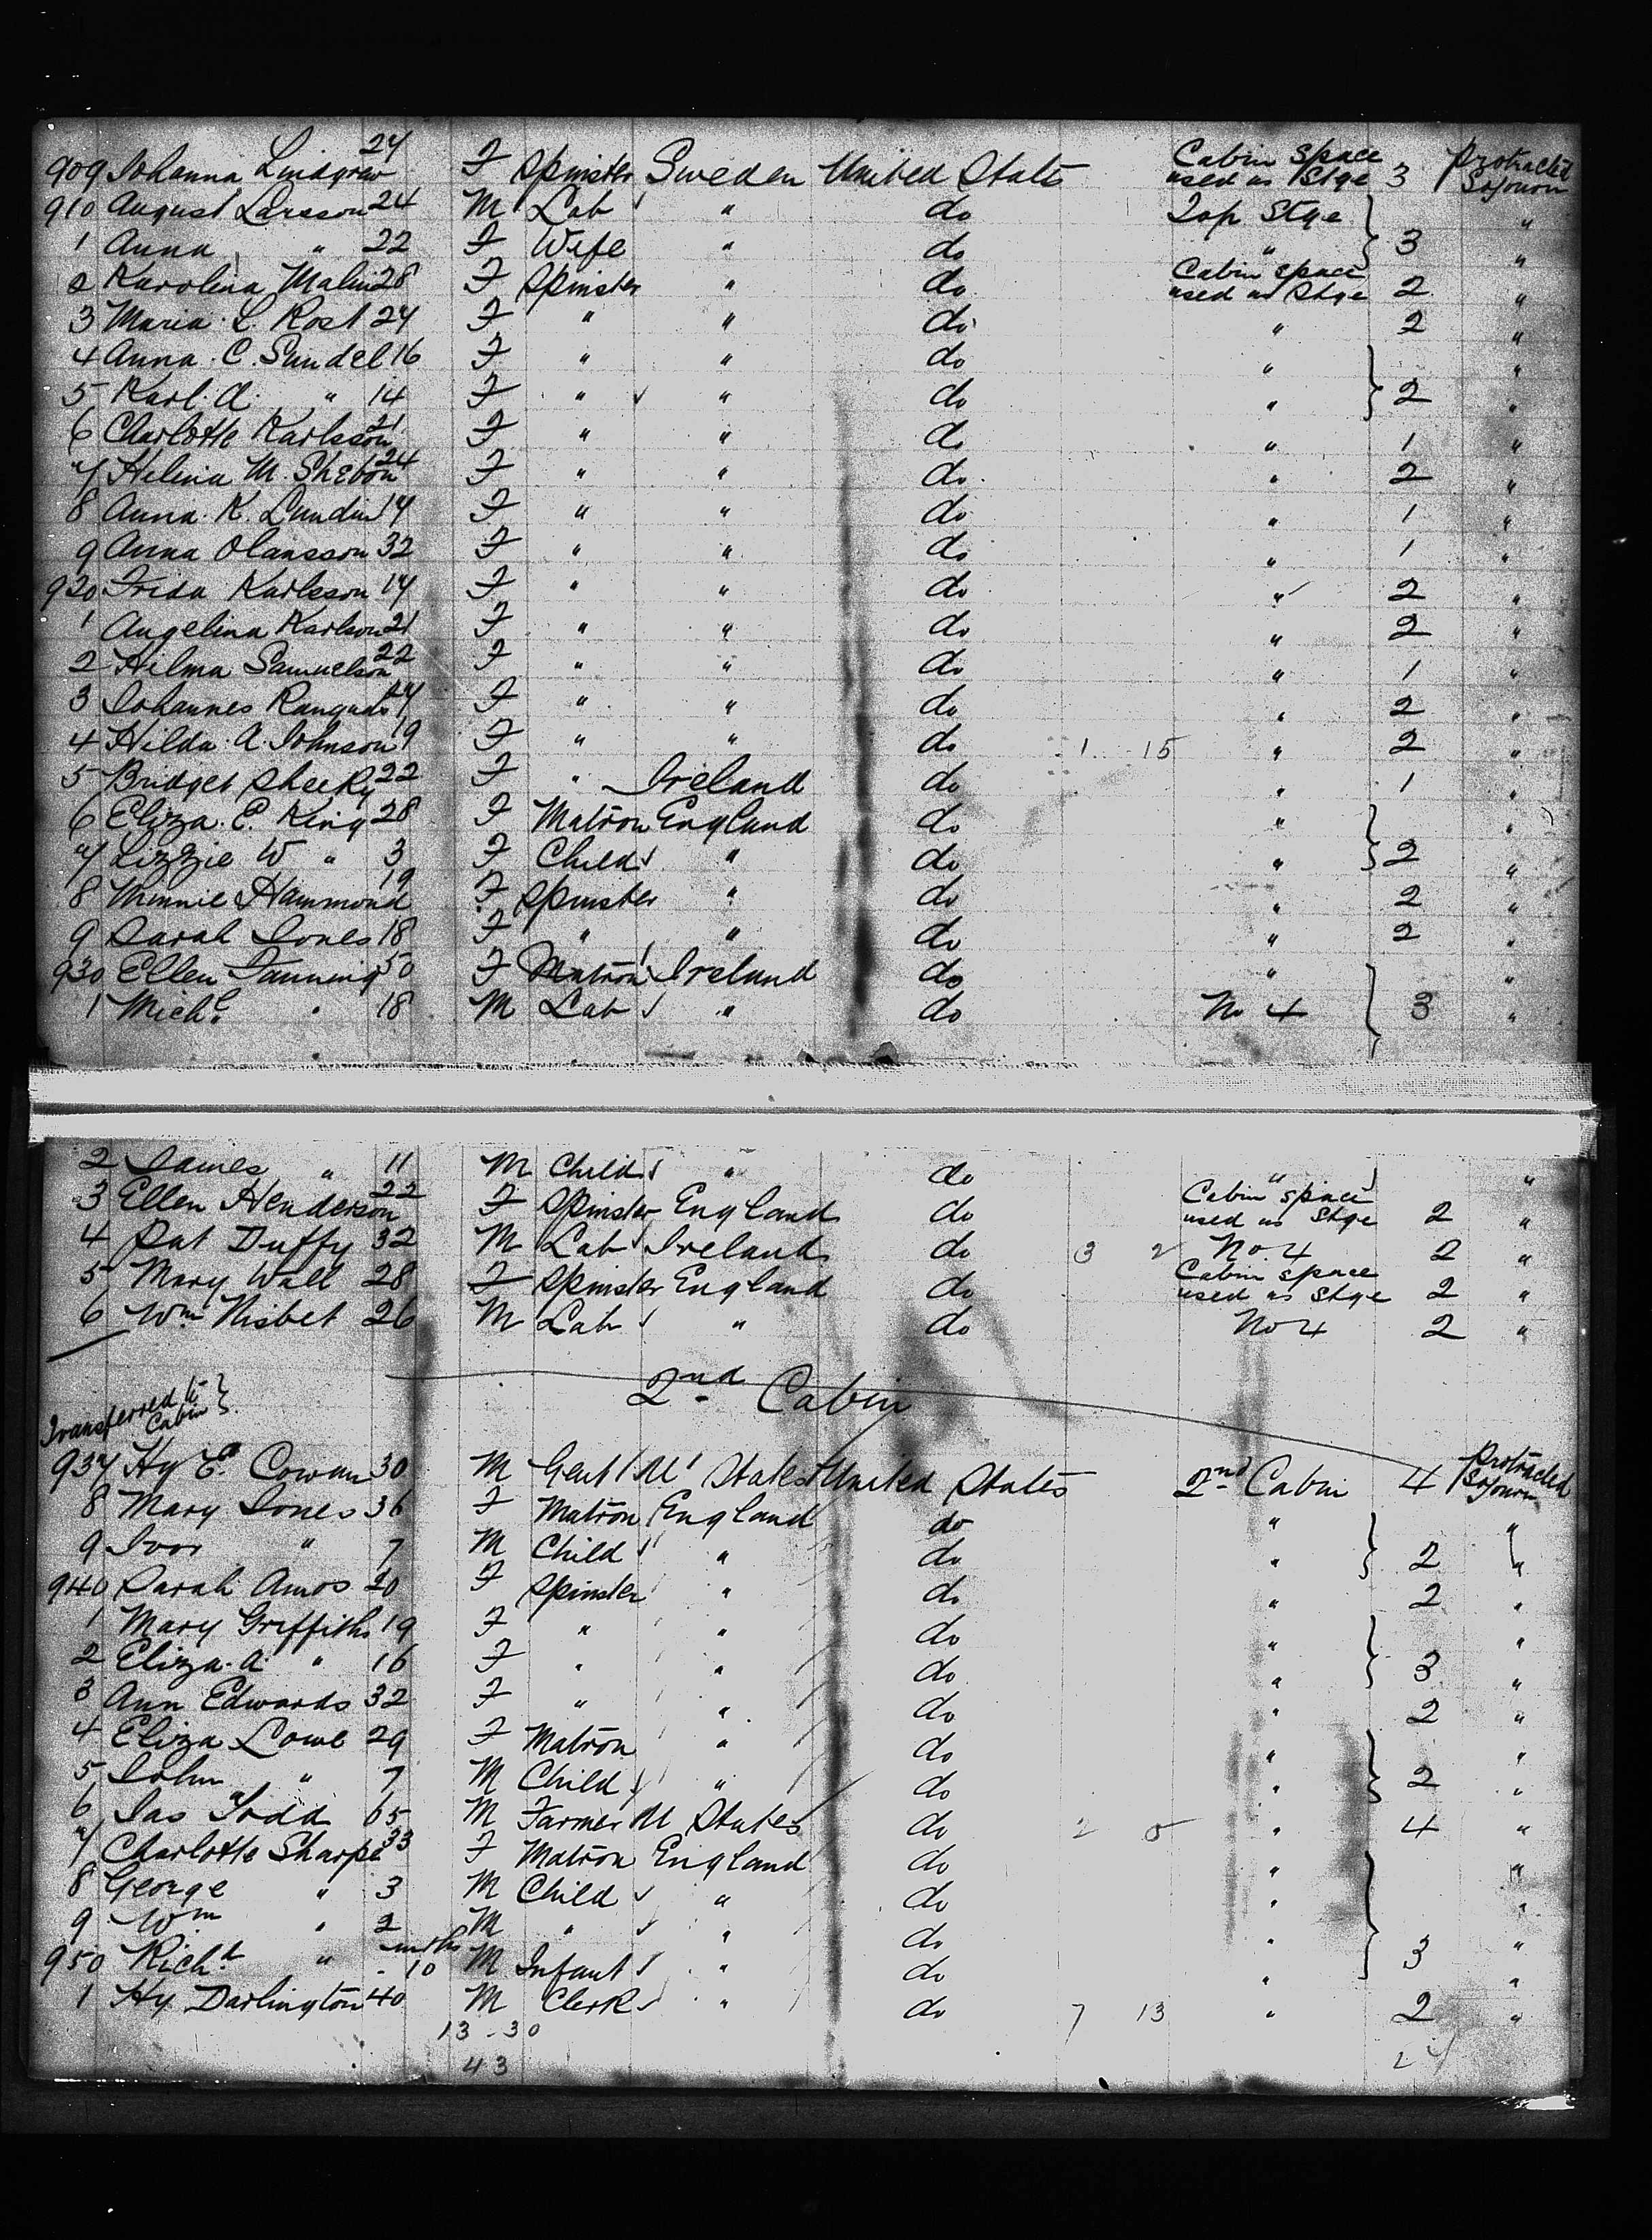 909 Johanna Lindgren 24 F Spinster Sweden United States Cabin Space used as Stge 3 Protracted Sojourn
910 August Larsson 24 M Lab " do Top Stge "
1 Anna " 22 F Wife " do " 3 "
2 Karolina Malin 28 F Spinster " do Cabin space used as Stge 2 "
3 Maria L. Rost 24 F " " do " 2 "
4 Anna C. Sundel 16 F " " do " "
5 Karl A. " 14 F " " do " 2 "
6 Charlotte Karlsson 21 F " " do " 1 "
7 Helina M. Shebon 24 F " " do " 2 "
8 Anna K. Lundin 17 F " " do " 1 "
9 Anna Olansson 32 F " " do " 1 "
920 Frida Karlsson 17 F " " do " 2 "
1 Angelina Karlson 21 F " " do " 2 "
2 Hilma Samuelson 22 F " " do " 1 "
3 Johannes F " " do " 2 "
4 Hilda A. Johnson 19 F " " do 1 15 " 2 "
5 Bridget Sheeky 22 F " Ireland do " 1 "
6 Eliza E. King 28 F Matron England do " "
7 Lizzie W " 3 F Child " do " 2 "
8 Minnie Hammond 19 F Spinster " do " 2 "
9 Sarah Jones 18 F " " do " 2 "
930 Ellen Fanning 50 F Matron Ireland do " "
1 Michl " 18 M Lab " do No 4 3 "
2 James " 11 M Child " do " "
3 Ellen Henderson 22 F Spinster England do Cabin space used as Stge 2 "
4 Pat Duffy 32 M Lab Ireland do 3 2 No 4 2 "
5 Mary Wall 28 F Spinster England do Cabin space used as Stge 2 "
6 Wm Nisbet 26 M Lab " do No 4 2 "
2nd Cabin
Transferred to Cabin
937 Hy Ed Cowan 30 M Gent U States United States 2nd Cabin 4 Protracted Sojourn
8 Mary Jones 36 F Matron England do " "
9 Ivor " 7 M Child " do " 2 "
940 Sarah Amos 20 F Spinster " do " 2 "
1 Mary Griffiths 19 F " " do " "
2 Eliza A. " 16 F " " do " 3 "
3 Ann Edwards 32 F " " do " 2 "
4 Eliza Lowe 29 F Matron " do " "
5 John " 7 M Child " do " 2 "
6 Jas Todd 65 M Farmer U States do 2 0 " 4 "
7 Charlotte Sharpe 33 F Matron England do " "
8 George " 3 M Child " do " "
9 Wm " 2 M " " do " "
950 Richd " mths 10 M Infant " do " 3 "
1 Hy Darlington 40 M Clerk " do 7 13 " 2 "
13 - 30
43